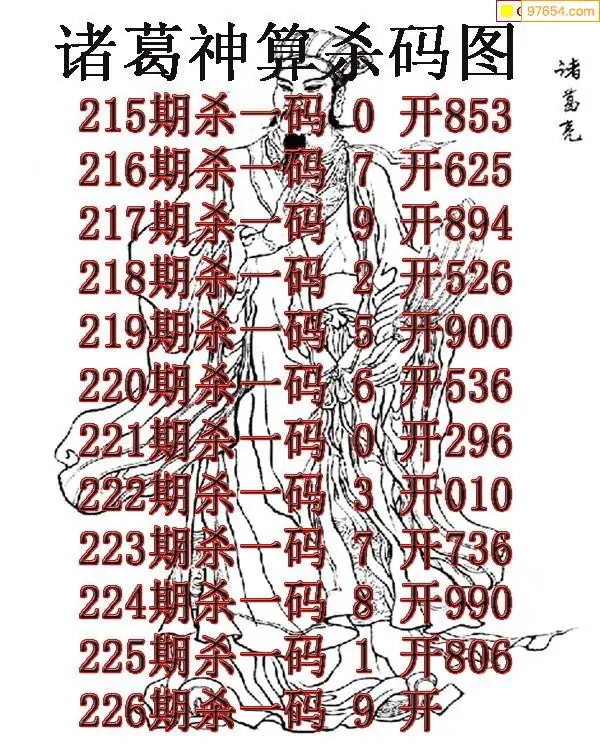 97654.com
诸葛神算杀码图
诸葛亮
215期杀一码 0 开853
216期杀一码 7 开625
217期杀一码 9 开894
218期杀一码 2 开526
219期杀一码 5 开900
220期杀一码 6 开536
221期杀一码 0 开296
222期杀一码 3 开010
223期杀一码 7 开736
224期杀一码 8 开990
225期杀一码 1 开806
226期杀一码 9 开